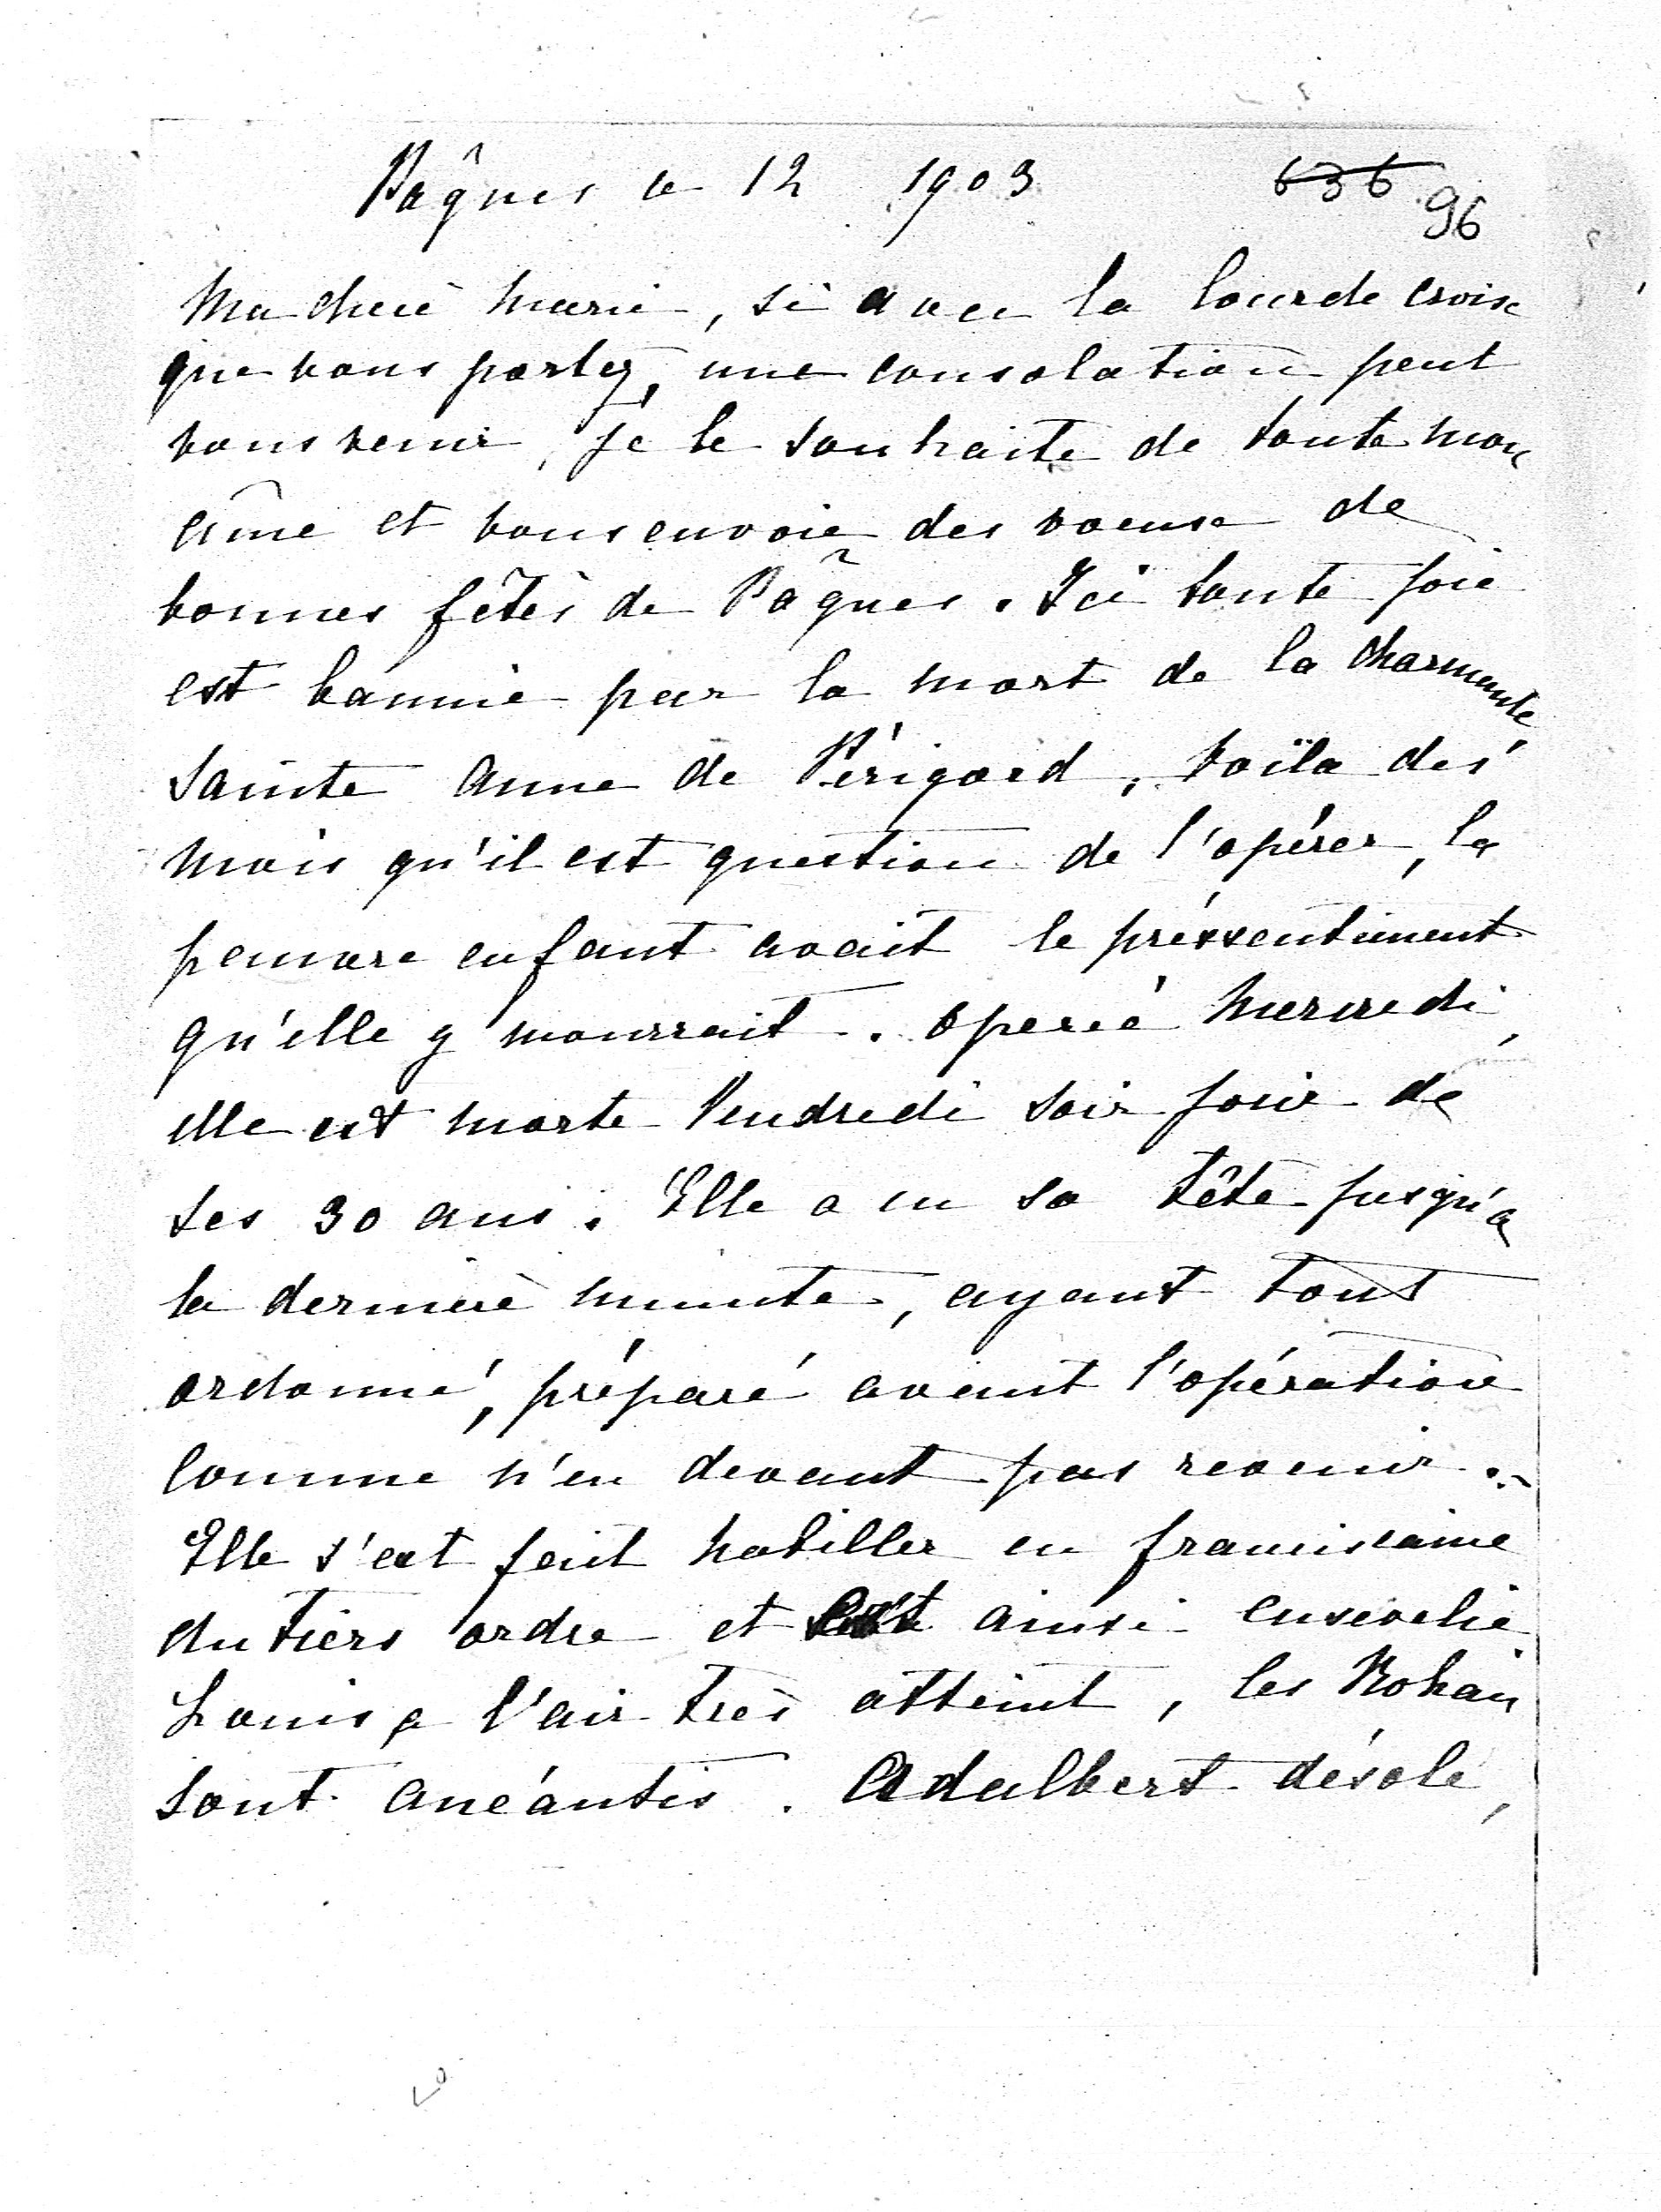 Pâques le 12 1903
636 96
Ma chère Marie, si avec la lourde croix
que vous portez, une consolation peut
vous venir, je le souhaite de toute mon
âme et vous envoie des voeux de
bonnes fêtes de Pâques. Ici toute joie
est bannie par la mort de la charmante
sainte Anne de Périgord, voïla des
mois qu'il est question de l'opérer, la
pauvre enfant avait le pressentiment
qu'elle y mourrait. Opérée Mercredi,
elle est morte Vendredi soir jour de
ses 30 ans. Elle a eu sa tête jusqu'a
la dernière minute, ayant tout
ordonné, préparé avant l'opération
comme n'en devant pas revenir.
Elle s'est fait habiller en franciscaine
du tiers ordre et est ainsi ensevelie
Louis a l'air très atteint, les Rohan
sont anéantis. Adalbert désolé,